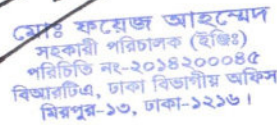 মোঃ ফয়েজ আহমেদ
সহকারী পরিচালক (ইঞ্জিঃ)
পরিচিতি নং-২০১৪২০০০৪৫
বিআরটিএ, ঢাকা বিভাগীয় অফিস
মিরপুর-১৩, ঢাকা-১২১৬।